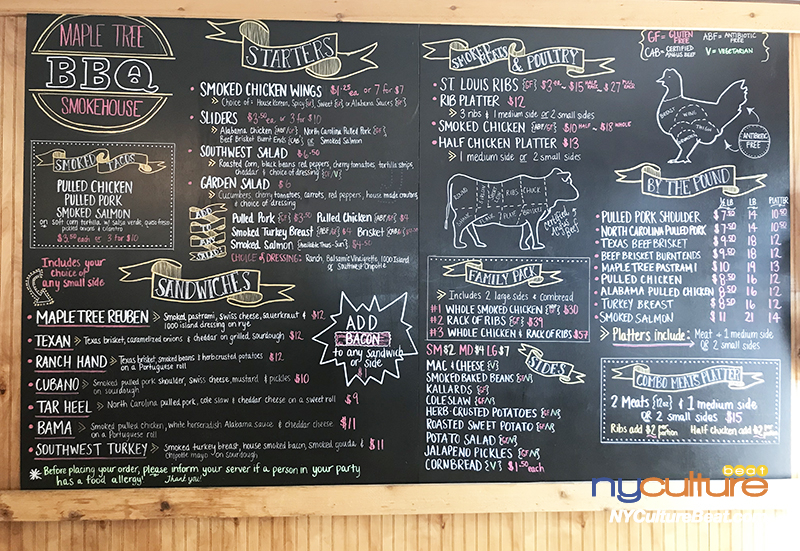 MAPLE TREE
BBQ
SMOKEHOUSE
SMOKED TACOS
PULLED CHICKEN
PULLED PORK
SMOKED SALMON
on soft corn tortilla, w/ salsa verde, queso fresco,
pickled onions & cilantro
$3.50 each or 3 for $10
STARTERS
SMOKED CHICKEN WINGS $1.25 ea or 7 for $7
Choice of: House Korean, Spicy {GF}, Sweet {GF} or Alabama Sauces {GF}
SLIDERS $3.50 ea or 3 for $10
Alabama Chicken {ABF/GF} North Carolina Pulled Pork {GF}
Beef Brisket Burnt Ends {CAB} or Smoked Salmon
SOUTHWEST SALAD $6.50
Roasted corn, black beans red peppers, cherry tomatoes, tortilla strips,
cheddar & choice of dressing {GF/V}
GARDEN SALAD $6
Cucumbers, cherry tomatoes, carrots, red peppers, house made croutons
& choice of dressing
ADD TO ANY SALAD
Pulled Pork {GF} $3.50 Pulled Chicken {ABF/GF} $4
Smoked Turkey Breast {ABF/GF} $4 Brisket {CAB/GF}
Smoked Salmon {Available Thurs-Sun} $4.50
CHOICE OF DRESSING: Ranch, Balsamic Vinaigrette, 1000 Island
or Southwest Chipotle
Includes your
choice of
any small side
SANDWICHES
MAPLE TREE REUBEN Smoked, pastrami, swiss cheese, sauerkraut & $12
1000 island dressing on rye
TEXAN Texas brisket, caramelized onions & cheddar on grilled, sourdough $12
RANCH HAND Texas brisket, smoked beans & herb crusted potatoes $12
on a Portuguese roll
CUBANO Smoked pulled pork shoulder, Swiss cheese, mustard & pickles $10
on sourdough
TAR HEEL North Carolina pulled pork, cole slaw & cheddar cheese on a sweet roll $9
BAMA Smoked pulled chicken, white horseradish Alabama sauce & cheddar cheese $11
on a Portuguese roll
SOUTHWEST TURKEY Smoked turkey breast, house smoked bacon, smoked gouda & $11
chipotle mayo on sourdough
ADD
BACON
to any sandwich
or side
*Before placing your order, please inform your server if a person in your party
has a food allergy! Thank you!
SMOKED MEATS & POULTRY
ST LOUIS RIBS {GF} $3 ea ~ $15 HALF RACK ~ $27 FULL RACK
RIB PLATTER $12
3 ribs & 1 medium side or 2 small sides
SMOKED CHICKEN {ABF/GF} $10 HALF ~ $18 WHOLE
HALF CHICKEN PLATTER $13
1 medium side or 2 small sides
RIBS CHUCK
BRISKET
Certified
Angus
Beef
FAMILY PACK
Includes 2 large sides & cornbread
#1 WHOLE SMOKED CHICKEN {ABF/GF} $30
#2 RACK OF RIBS {GF} $39
#3 WHOLE CHICKEN & RACK OF RIBS $57
SM $2 MD $4 LG $7
SIDES
MAC & CHEESE {V}
SMOKED BAKED BEANS {GF}
KALLARDS {GF}
COLE SLAW {GF/V}
HERB-CRUSTED POTATOES {GF/V}
ROASTED SWEET POTATO {GF/V}
POTATO SALAD {GF/V}
JALAPENO PICKLES {GF/V}
CORNBREAD {V} $1.50 each
GF = GLUTEN FREE ABF = ANTIBIOTIC FREE
CAB = CERTIFIED ANGUS BEEF V = VEGETARIAN
BREAST WING THIGH
ANTIBIOTIC
FREE
BY THE POUND
½ LB LB PLATTER
PULLED PORK SHOULDER $7.50 14 10.50
NORTH CAROLINA PULLED PORK $7.50 14 10.50
TEXAS BEEF BRISKET $9.50 18 12
BEEF BRISKET BURNT ENDS $9.50 18 12
MAPLE TREE PASTRAMI $10 19 13
PULLED CHICKEN $8.50 16 12
ALABAMA PULLED CHICKEN $8.50 16 12
TURKEY BREAST $8.50 16 12
SMOKED SALMON $11 21 14
Platters include: Meat + 1 medium side
or 2 small sides
COMBO MEATS PLATTER
2 Meats {12oz} & 1 medium side
OR 2 small sides $15
Ribs add $2 per portion Half Chicken add $2 per portion
nyculture beat
NYCultureBeat.com